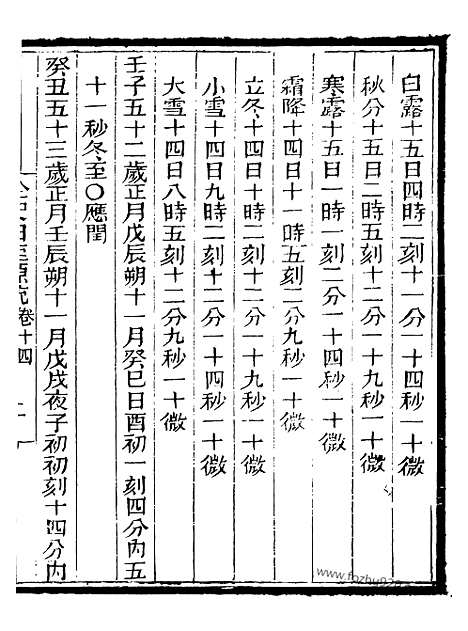 白露十五日四時二刻十一分一十四秒一十微
秋分十五日二時五刻十二分一十九秒一十微
寒露十五日一時一刻二分一十四秒一十微
霜降十四日十一時五刻二分九秒一十微
立冬十四日十時二刻十二分一十九秒一十微
小雪十四日九時二刻十二分一十四秒一十微
大雪十四日八時五刻十二分九秒一十微
壬子五十二歲正月戊辰朔十一月癸巳日酉初一刻四分內五
十一秒冬至〇應閏
癸丑五十三歲正月壬辰朔十一月戊戌夜子初初刻十四分內
卷十四
www.fozhu920.com